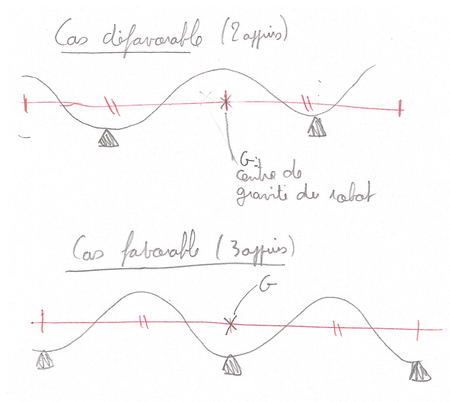 Cas défavorable (2 appuis)
G:
centre de
gravité du robot
Cas favorable (3 appuis)
G